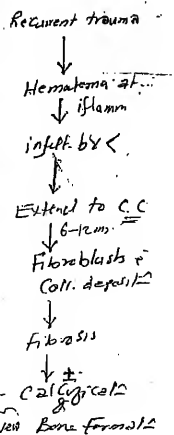 Recurrent trauma
Hematoma at...
iflamm
infilt by <
Extend to C.C
6-12m.
Fibroblasts
Coll. deposit
Fibrosis
±
Calcifical
&
new Bone format